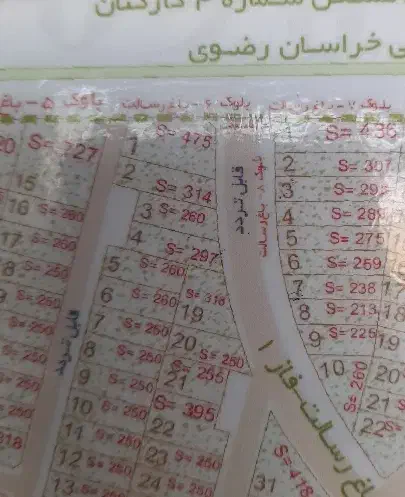 ی خراسان رضوی
بلوک ۷ - باغ رسالت
بلوک ۶ - باغ رسالت
بلوک ۵ - باغ
1 S= 475
2 S= 314
3 S= 260
4 S= 297
5 S= 260
6 S= 260
7 S= 250
8 S= 250
9 S= 250
10 S= 250
11 S= 250
12 S= 250
13 S= 250
S= 316
19
20 S= 250
21 S= 295
S= 395
22
23 S= 250
24 S= 250
قابل تردد
بلوک ۸ - باغ رسالت
1 S= 436
2 S= 307
3
4
5 S= 275
6 S= 259
7 S= 238
8 S= 213
9 S= 225
10 S= 260
17
18
19
20
21 S
22 S
15
16 S= 260
17 S= 250
8 S= 250
S= 250
S= 250
S= 250
S= 250
318
قابل تردد
باغ رسالت - فاز ۱
31 S= 418